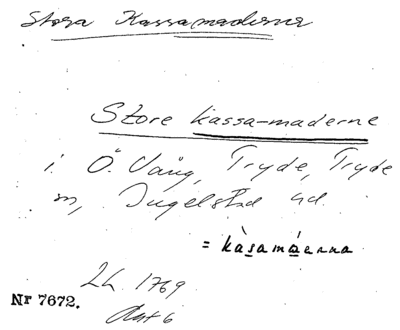 Stora Kassamaderna
Store kassa-maderne
i Ö. Vång, Tryde, Tryde
sn, Ingelstad hd.
= kàsamáerna
LL 1769
Akt 6
Nr 7672.